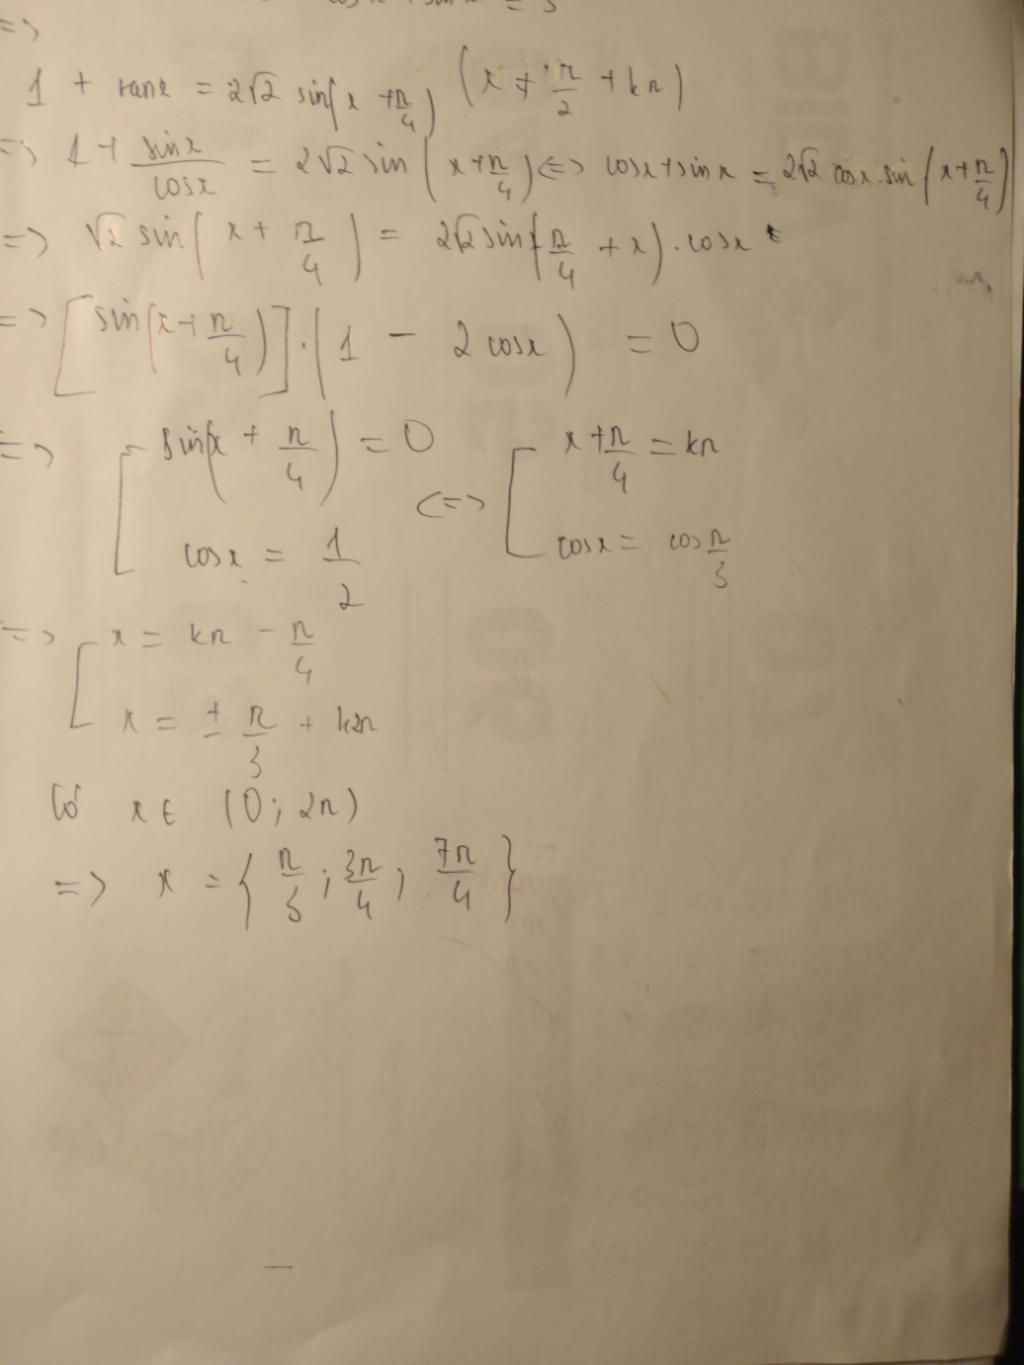 =>
1 + tanx = 2√2 sin(x + π/4) (x ≠ π/2 + kπ)
=> 1 + sinx/cosx = 2√2 sin(x + π/4) <=> cosx + sinx = 2√2 cosx.sin(x + π/4)
=> √2 sin(x + π/4) = 2√2 sin(π/4 + x).cosx
=> [sin(x + π/4)].(1 - 2cosx) = 0
=> [ sin(x + π/4) = 0 <=> [ x + π/4 = kπ
cosx = 1/2 cosx = cos π/3
=> [ x = kπ - π/4
x = ± π/3 + k2π
Có x ∈ (0; 2π)
=> x = { π/3 ; 3π/4 ; 7π/4 }